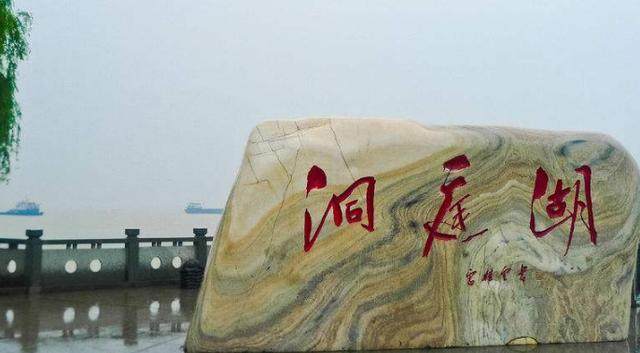 洞庭湖